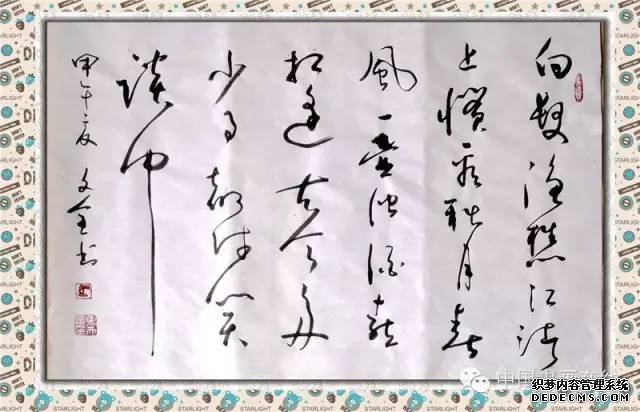 白髮渔樵江渚
上慣看秋月春
風一壺浊酒喜
相逢古今多
少事都付笑
談中
甲午夏 文全书
中国书画在线
织梦内容管理系统
DEDECMS.COM
STARLIGHT